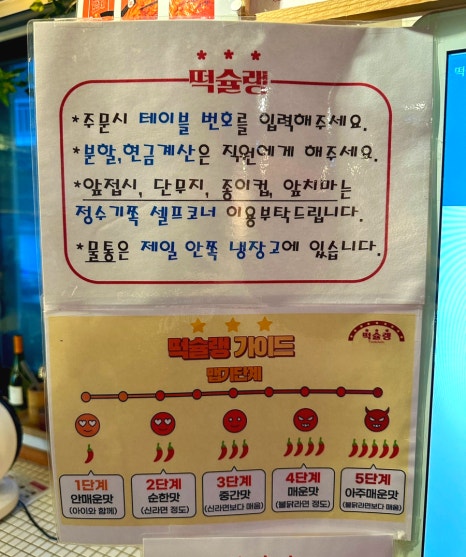 떡슐랭
*주문시 테이블 번호를 입력해주세요.
*분할,현금계산은 직원에게 해주세요.
*앞접시, 단무지, 종이컵, 앞치마는
정수기쪽 셀프코너 이용부탁드립니다.
*물통은 제일 안쪽 냉장고에 있습니다.
떡슐랭 가이드
떡슐랭
맵기단계
1단계
안매운맛
(아이와 함께)
2단계
순한맛
(신라면 정도)
3단계
중간맛
(신라면보다 매움)
4단계
매운맛
(불닭라면 정도)
5단계
아주매운맛
(불닭라면보다 매움)